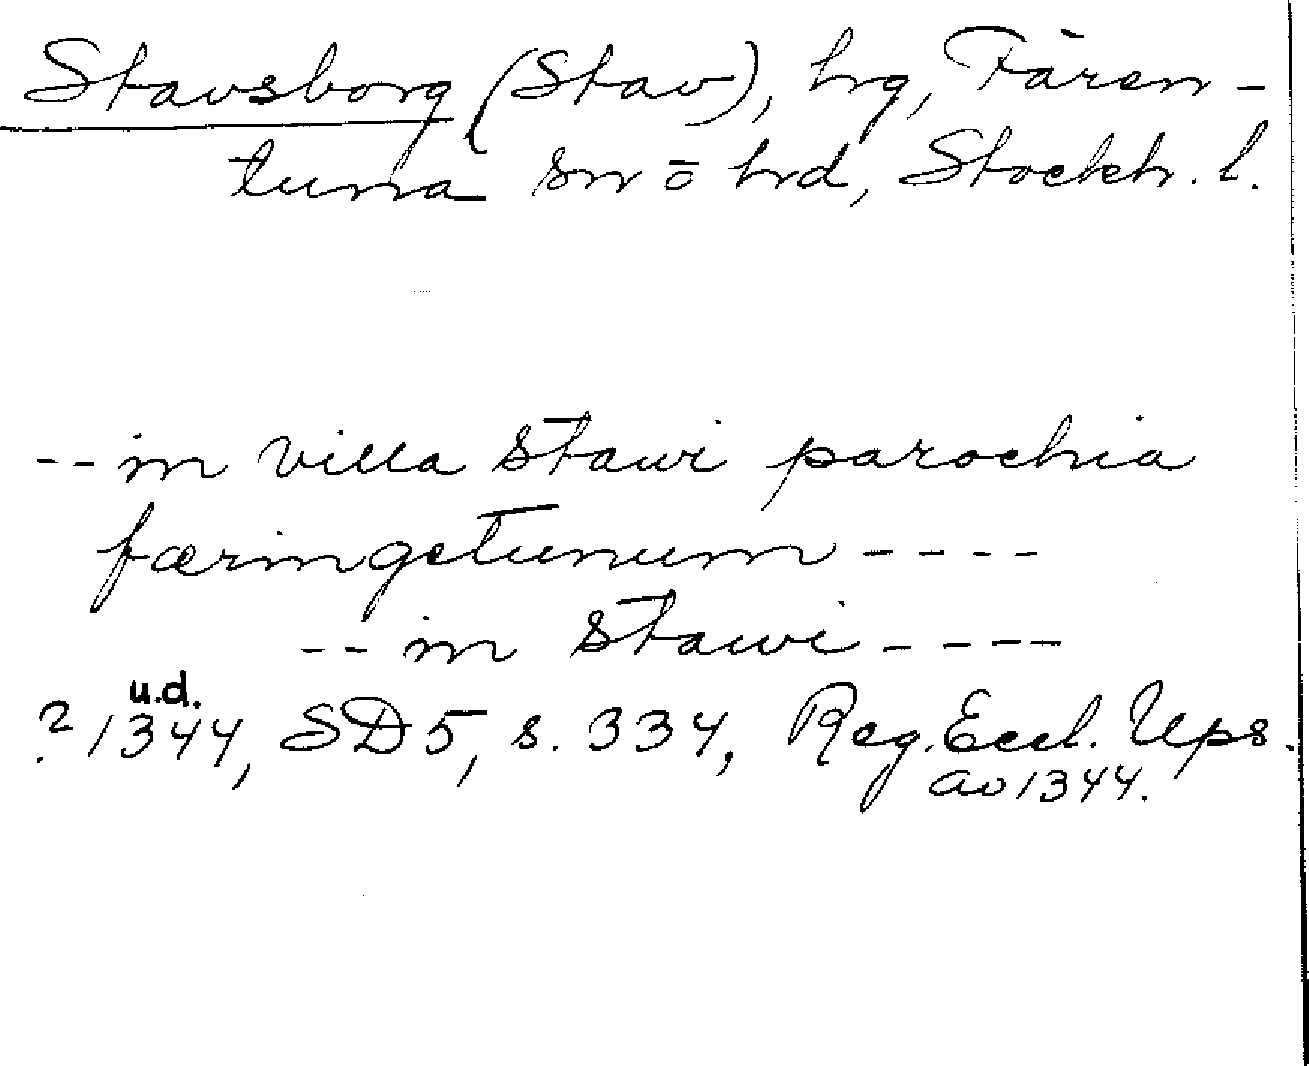 Stavsborg (Stav), hrg, Fären-
tuna sn ō hrd, Stockh. l.
-- in villa stawi parochia
færingetunum ----
-- in stawi ----
u.d.
? 1344, SD 5, s. 334, Reg. Eccl. Ups.
av 1344.